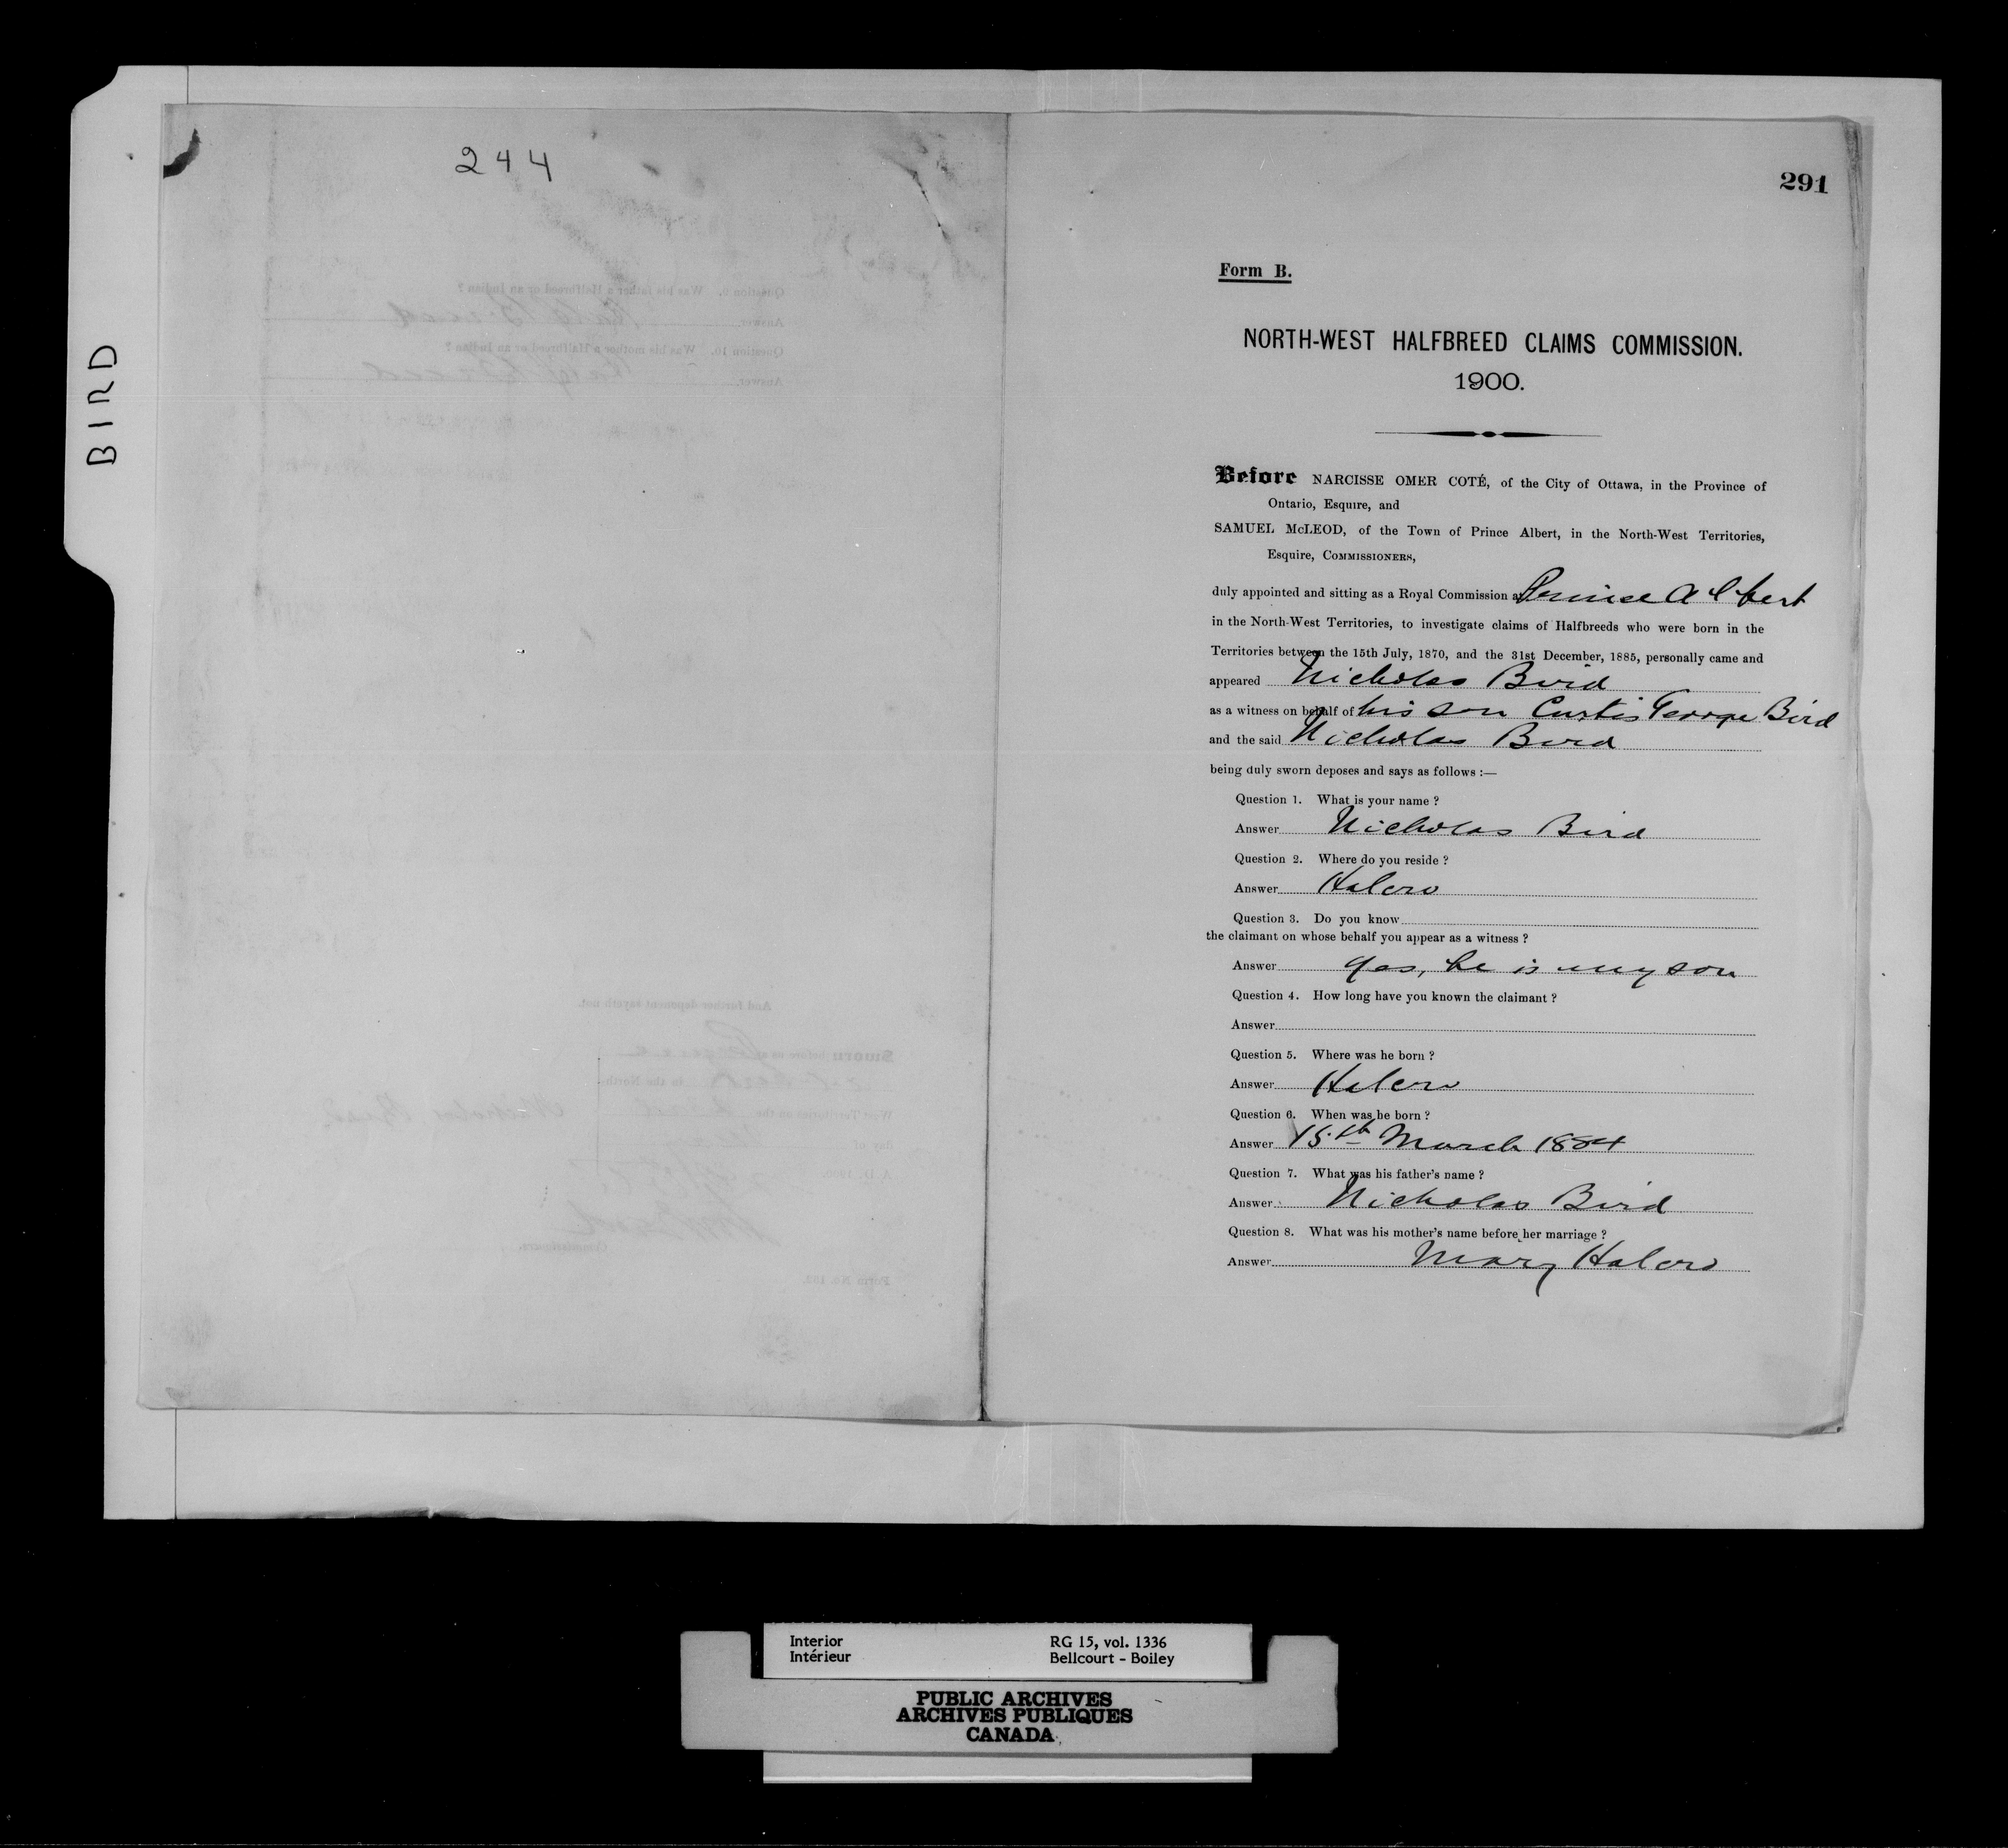 BIRD
244
291
Form B.
NORTH-WEST HALFBREED CLAIMS COMMISSION.
1900.
Before NARCISSE OMER COTÉ, of the City of Ottawa, in the Province of
Ontario, Esquire, and
SAMUEL McLEOD, of the Town of Prince Albert, in the North-West Territories,
Esquire, COMMISSIONERS,
duly appointed and sitting as a Royal Commission at Prince Albert
in the North-West Territories, to investigate claims of Halfbreeds who were born in the
Territories between the 15th July, 1870, and the 31st December, 1885, personally came and
appeared Nicholas Bird
as a witness on behalf of his son Curtis George Bird
and the said Nicholas Bird
being duly sworn deposes and says as follows :—
Question 1. What is your name ?
Answer Nicholas Bird
Question 2. Where do you reside ?
Answer Halcro
Question 3. Do you know
the claimant on whose behalf you appear as a witness ?
Answer Yes, he is my son
Question 4. How long have you known the claimant ?
Answer
Question 5. Where was he born ?
Answer Halcro
Question 6. When was he born ?
Answer 15th March 1884
Question 7. What was his father's name ?
Answer Nicholas Bird
Question 8. What was his mother's name before her marriage ?
Answer Mary Halcro
Interior
Intérieur
RG 15, vol. 1336
Bellcourt - Boiley
PUBLIC ARCHIVES
ARCHIVES PUBLIQUES
CANADA